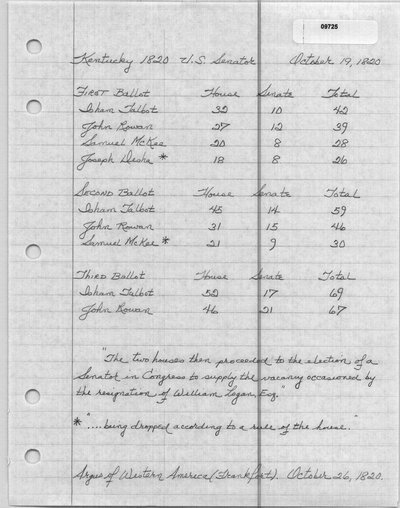 09725
Kentucky 1820 U.S. Senator October 19, 1820
First Ballot House Senate Total
Isham Talbot 32 10 42
John Rowan 27 12 39
Samuel McKee 20 8 28
Joseph Desha * 18 8 26
Second Ballot House Senate Total
Isham Talbot 45 14 59
John Rowan 31 15 46
Samuel McKee * 21 9 30
Third Ballot House Senate Total
Isham Talbot 52 17 69
John Rowan 46 21 67
"The two houses then proceeded to the election of a
Senator in Congress to supply the vacancy occasioned by
the resignation of William Logan, Esq."
* "....being dropped according to a rule of the house."
Argus of Western America (Frankfort). October 26, 1820.